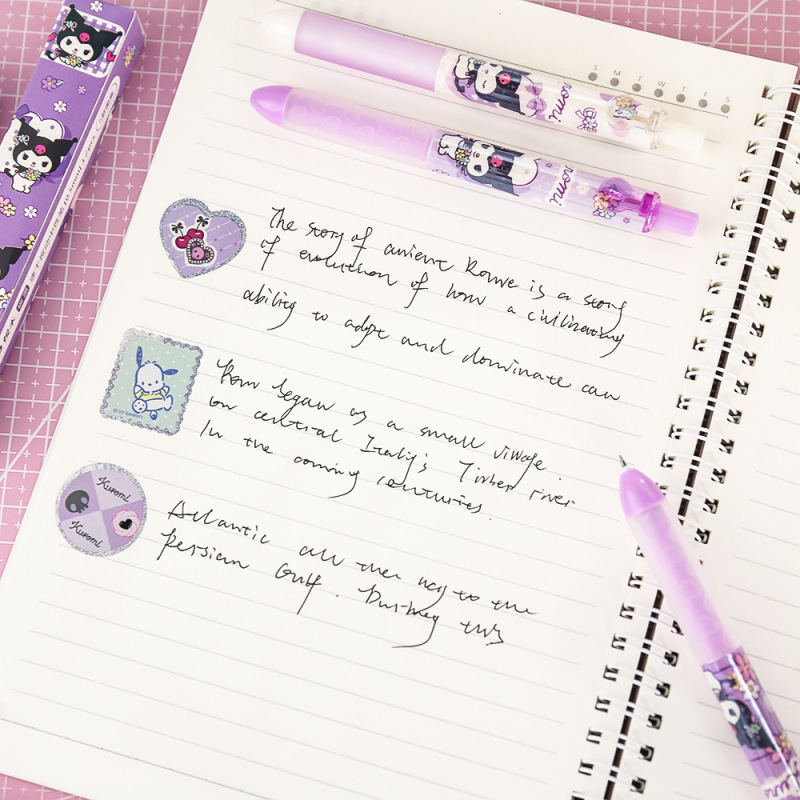 S M T W T F S
romi
romi
The story of anient Rome is a story
of evolution of how a civilizating
ability to adpt and dominate can
Rom began as a small viwage.
on central Italy's Tirber river
In the coming centuries.
Kuromi
Kuromi
Atlantic all the way to the
Persian Gulf. During this